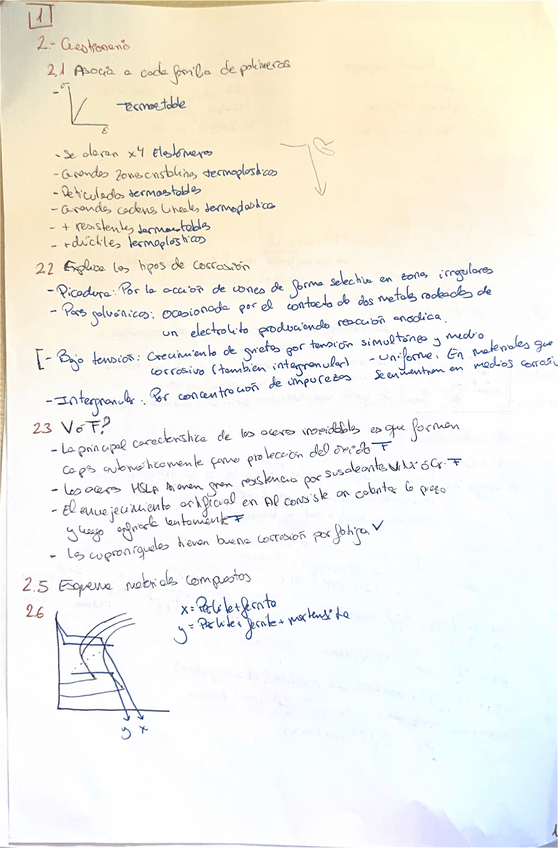 1
2.- Cuestionario
2,1 Asocia a cada familia de polímeros
σ
Termoestable
ε
- Se alargan x4 Elastómeros
- Grandes zonas cristalinas termoplásticos
- Reticulados termoestables
- Grandes cadenas lineales termoplástico
- + resistentes termoestables
- + dúctiles termoplásticos
2.2 Explica los tipos de corrosión
- Picadura: Por la acción de iones de forma selectiva en zonas irregulares
- Pares galvánicos: ocasionada por el contacto de dos metales rodeados de
un electrolito produciendo reacción anódica.
[- Bajo tensión: Crecimiento de grietas por tensión simultánea y medio
corrosivo (también intergranular) - Uniforme: En materiales que
- Intergranular: Por concentración de impurezas se encuentran en medios corrosi
2.3 V o F?
- La principal característica de los aceros inoxidables es que forman
capas automáticamente como protección del óxido F
- Los aceros HSLA tienen gran resistencia por sus aleantes V, Ni o Cr. F
- El envejecimiento artificial en Al consiste en calentar la pieza
y luego enfriarla lentamente F
- Los cuproníqueles tienen buena corrosión por fatiga V
2.5 Esquema materiales compuestos
2.6
x = Perlita + ferrita
y = Perlita + ferrita + martensita
y x
1